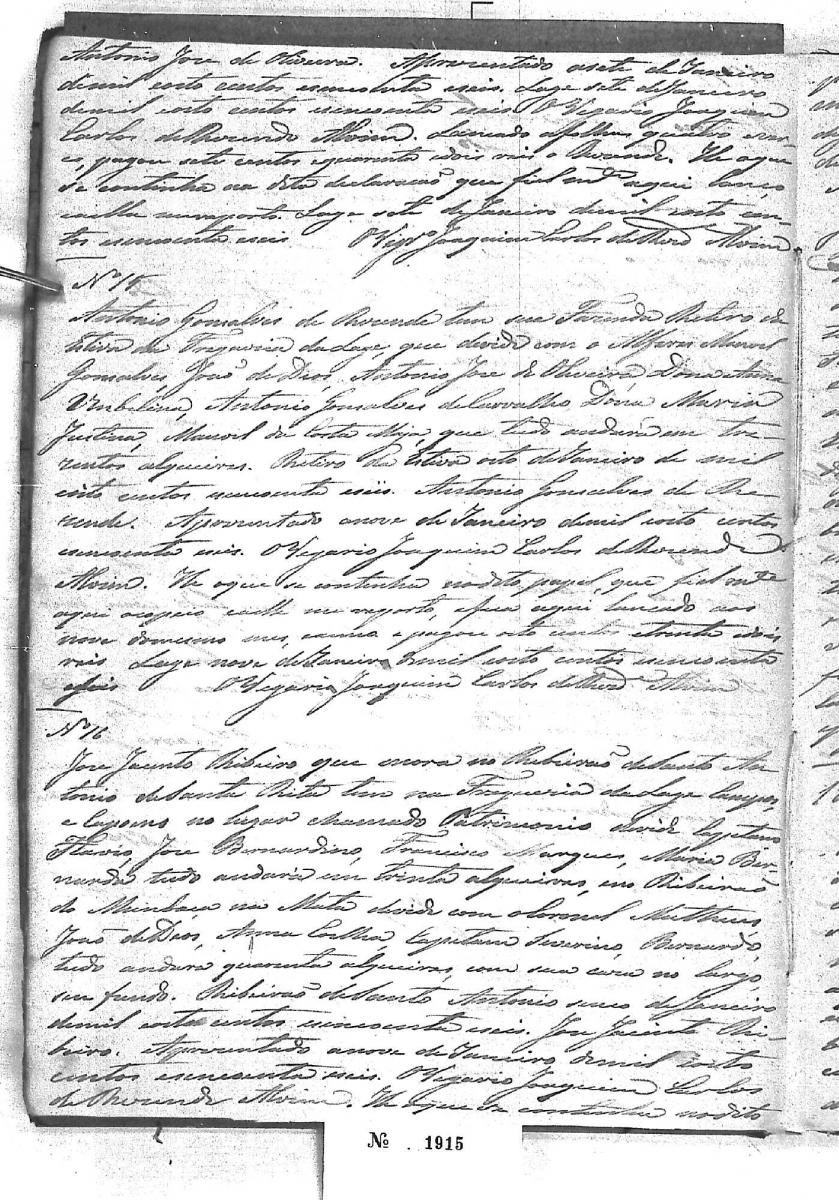 Antonio Jose de Oliveira. Aprezentado asete de Janeiro
demil oito centos esincoenta eseis. Lage sete de Janeiro
demil oito centos esincoenta eseis O Vigario Joaquim
Carlos de Rezende Alvim. Lancado afolhas quatro
e, pagou sete centos equarenta edois reis o Rezende. He oque
se continha na dita declaracaõ que fiel mte aqui lanço
eaella mereporto. Lage sete de Janeiro demil oito cen-
tos esincoenta eseis O Vigro Joaquim Carlos de Rezde Alvim
No 15
Antonio Gonsalves de Rezende tem sua Fazenda Retiro da
Estiva na Freguezia da Lage, que devide com o Alferes Manoel
Gonsalves, Joaõ de Dios, Antonio Jose de Oliveira, Dona Anna
Umbelina, Antonio Gonsalves de Carvalho, Dona Maria
Justina, Manoel da Costa Maja, que tudo andará em tre-
zentos alqueires. Retiro da Estiva oito de Janeiro de mil
oito centos esincoenta eseis. Antonio Gonsalves de Re-
zende. Aprezentado anove de Janeiro demil oito centos
esincoenta eseis. O Vigario Joaquim Carlos de Rezende
Alvim. He oque se continha nodito papel, que fiel mte
aqui ocopiei eaelle me reporto, efica aqui lancado aos
nove domesmo mes, e pagou oito centos etrinta edois
reis Lage nove de Janeiro demil oito centos esincoenta
eseis O Vigario Joaquim Carlos de Rezde Alvim
No 16
Jose Jacinto Ribeiro que mora no Ribeiraõ de Santo An-
tonio de Santa Rita tem na Freguezia da Lage campos
e capoens no lugar chamado Patrimonio devide Capitano
Flavio, Jose Bernardino, Francisco Marques, Maria Ber-
narda, tudo andará em trinta alqueires, eno Ribeiraõ
do Mombaca na Mata devide com oCoronel Matheus,
Joaõ de Dios, Anna Coelha, Capitam Severino, Bernardo,
tudo andará quarenta alqueires, com sua no largo
seu fundo. Ribeiraõ de Santo Antonio sinco de Janeiro
demil oito centos esincoenta eseis. Jose Jacinto Ri-
beiro. Aprezentado anove de Janeiro demil oito
centos esincoenta eseis. O Vigario Joaquim Carlos
de Rezende Alvim. He oque se continha nodito
No. 1915